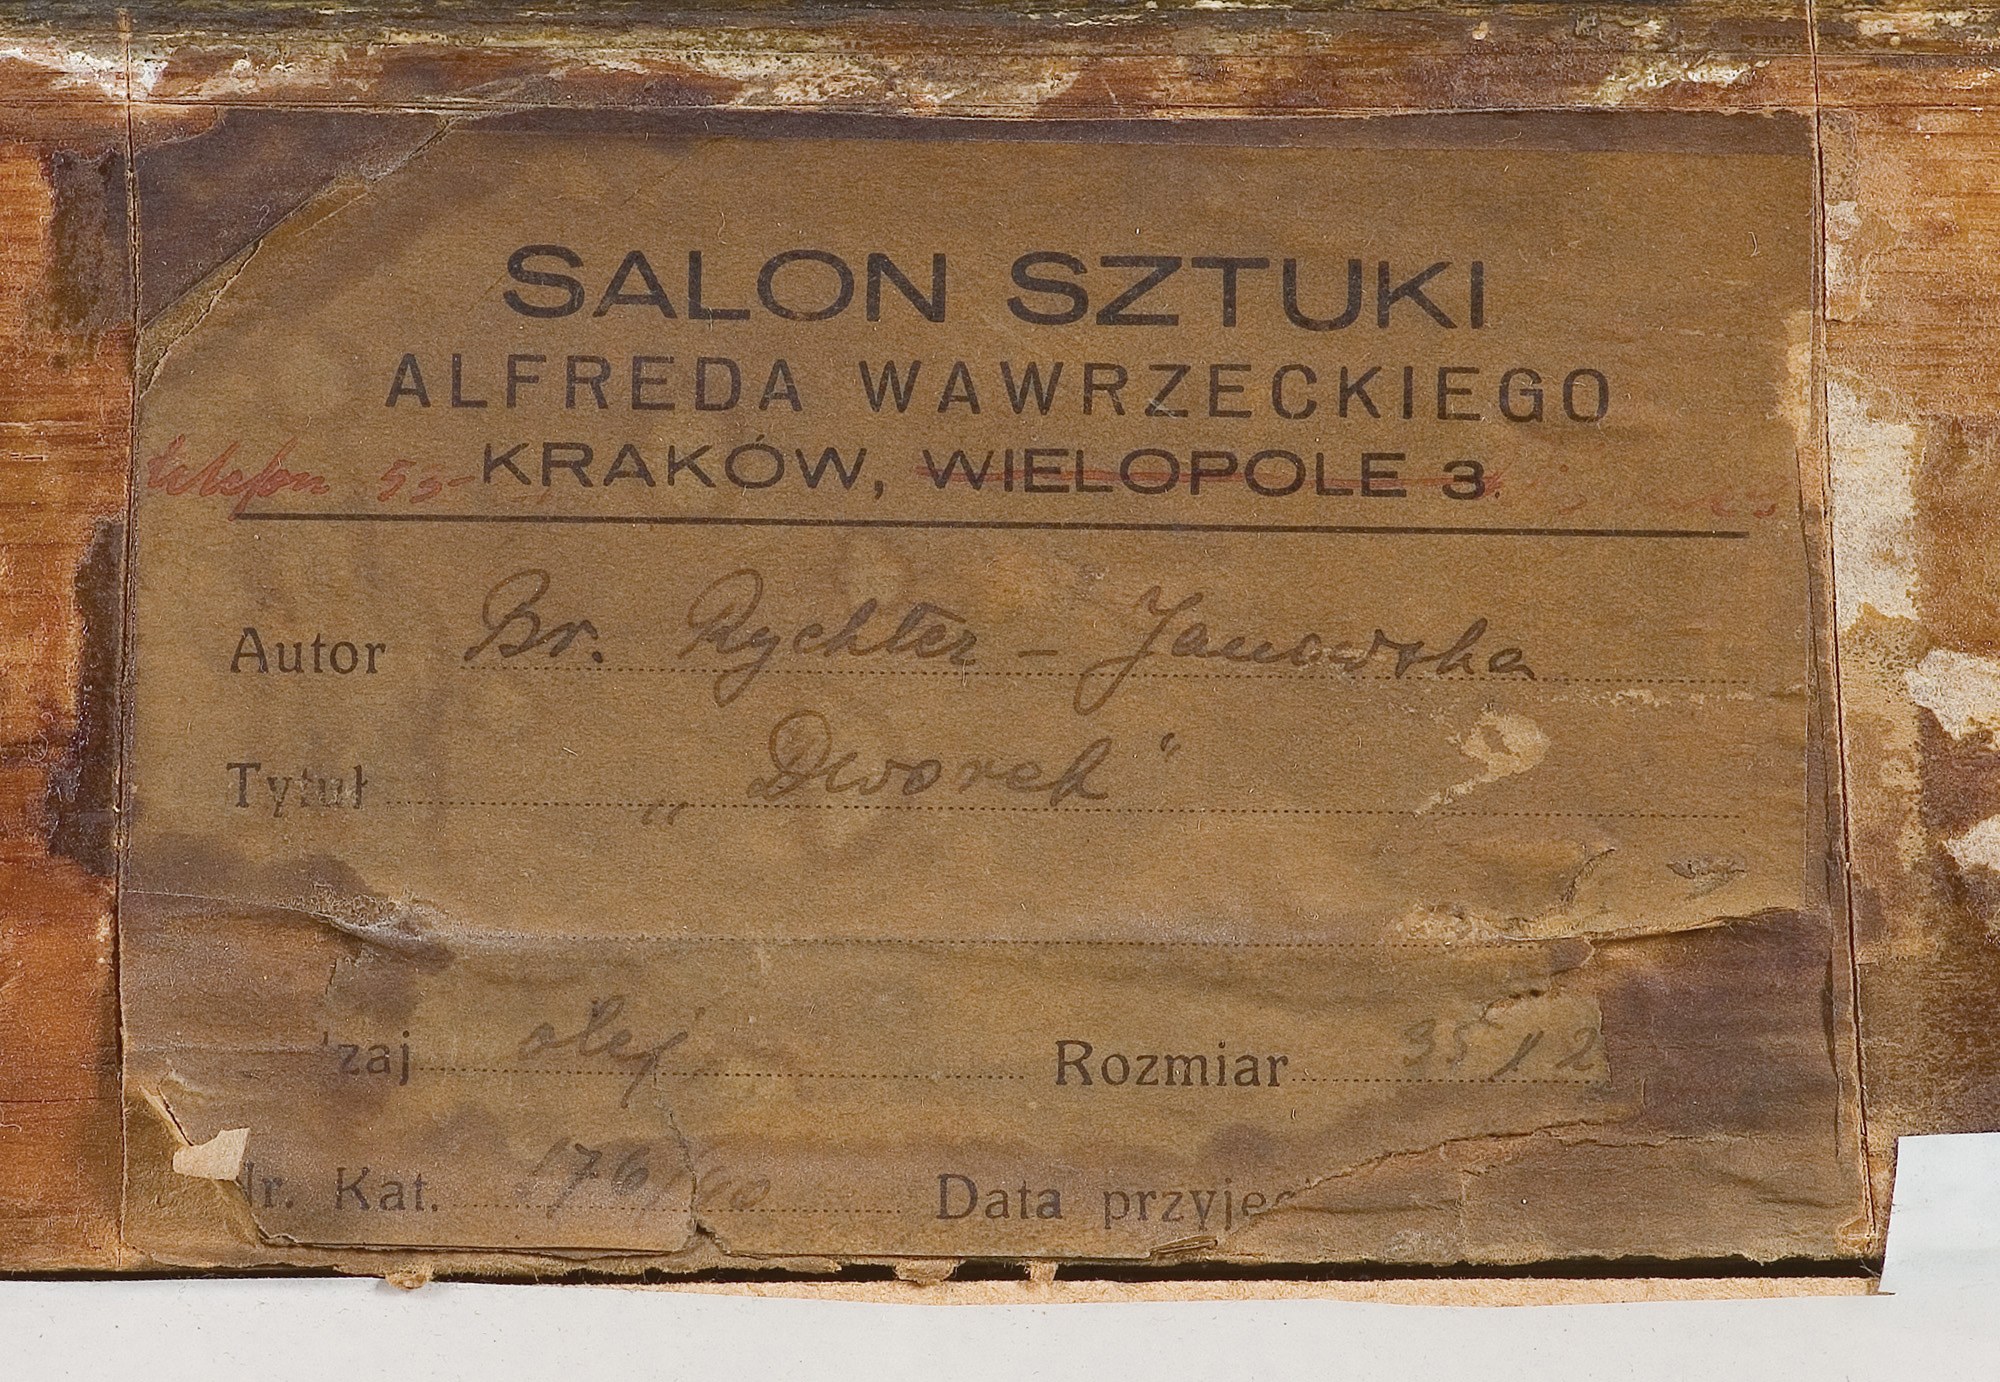 SALON SZTUKI
ALFREDA WAWRZECKIEGO
telefon 55- KRAKÓW, WIELOPOLE 3.
Autor Br. Rychter - Janowska
Tytuł „Dworek"
zaj olej Rozmiar 35 12
Nr. Kat. 176 Data przyję